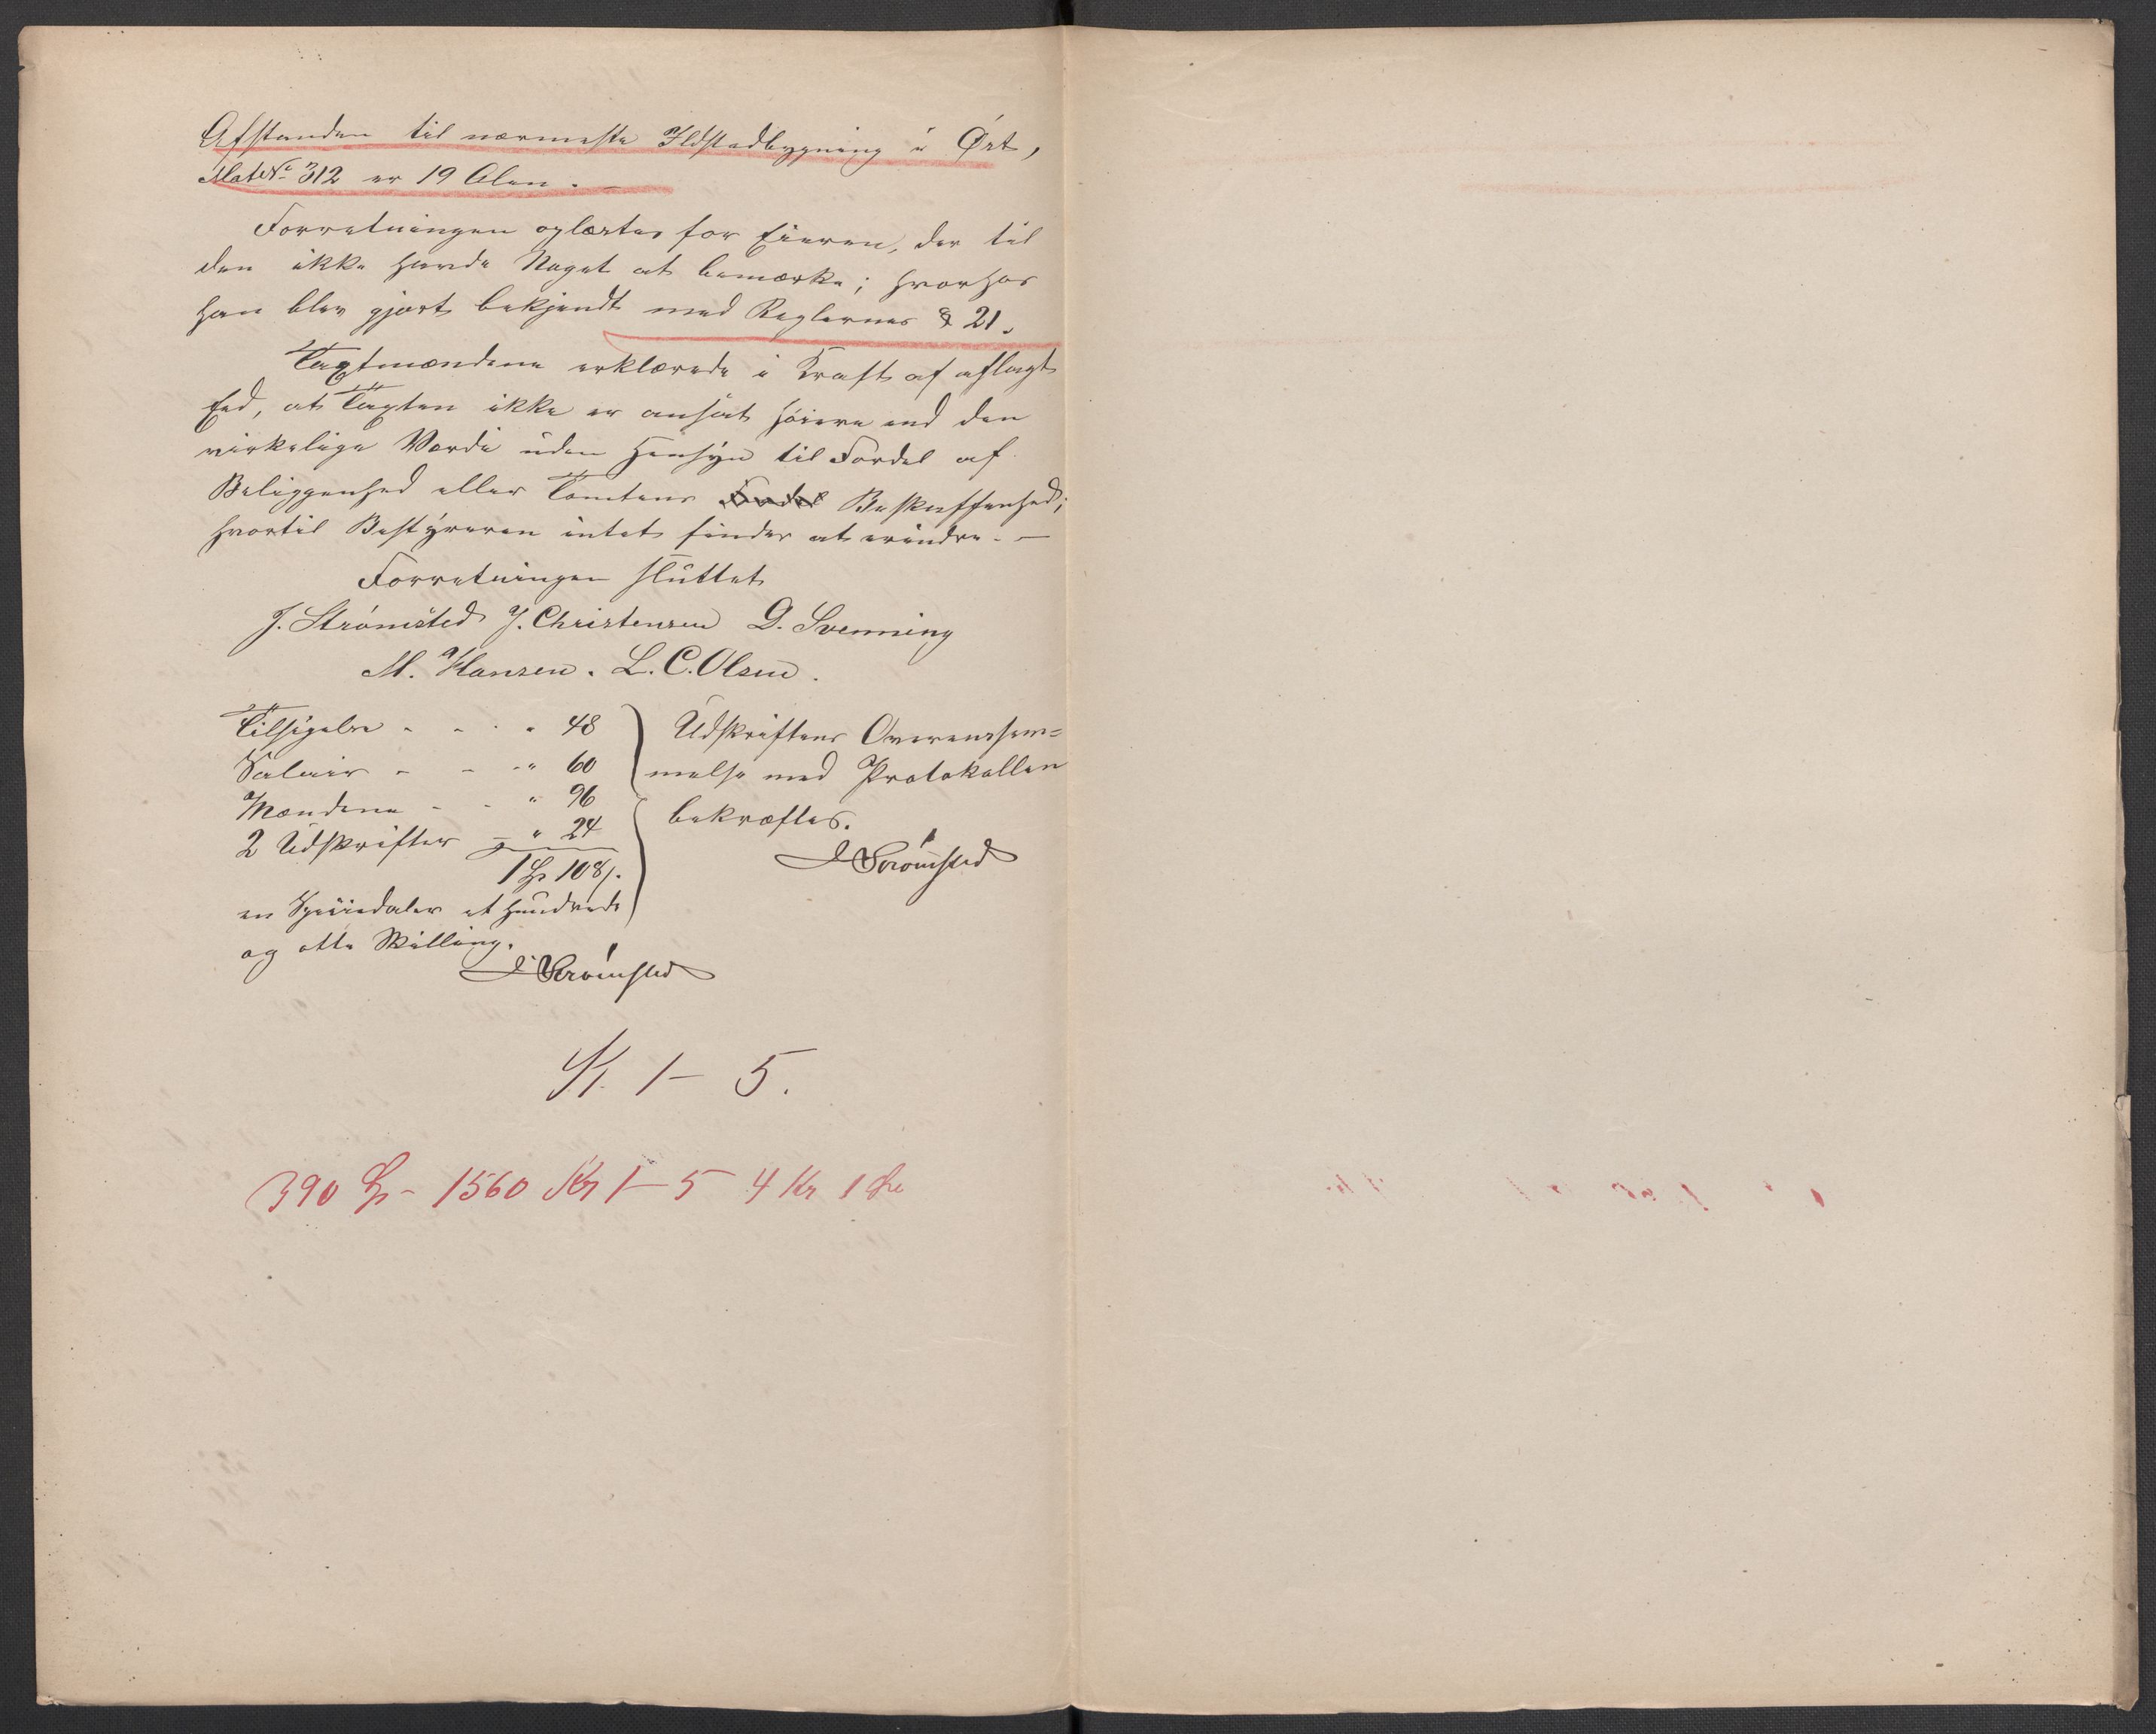 Afstanden til nærmeste Ildstedbygning i Øst,
Mat No 312 er 19 Alen. —
Forretningen oplæstes for Eieren, der til
den ikke havde Noget at bemærke; hvorhos
han blev gjort bekjendt med Reglernes § 21.
Taxtmændene erklærede i Kraft af aflagt
Eed, at Taxten ikke er ansat høiere end den
virkelige Værdi uden Hensyn til Fordel af
Beliggenhed eller Tomtens Fordel Beskaffenhed;
hvortil Bestyreren intet finder at erindre. —
Forretningen sluttet
J. Strömsted J. Christensen D. Svenning
M. Hansen. L. C. Olsen.
Tilsigelse - - - " 48
Salair - - - " 60
Mændene - - " 96
2 Udskrifter - " 24
1 Sp 108 s.
en Speciedaler et hundrede
og otte Skilling.
J Strömsted
Udskriftens Overenssem=
melse med Protokollen
bekræftes.
J Strömsted
Kl. 1 - 5.
390 Sp - 1560 Kr 1 - 5 4 Kr 1